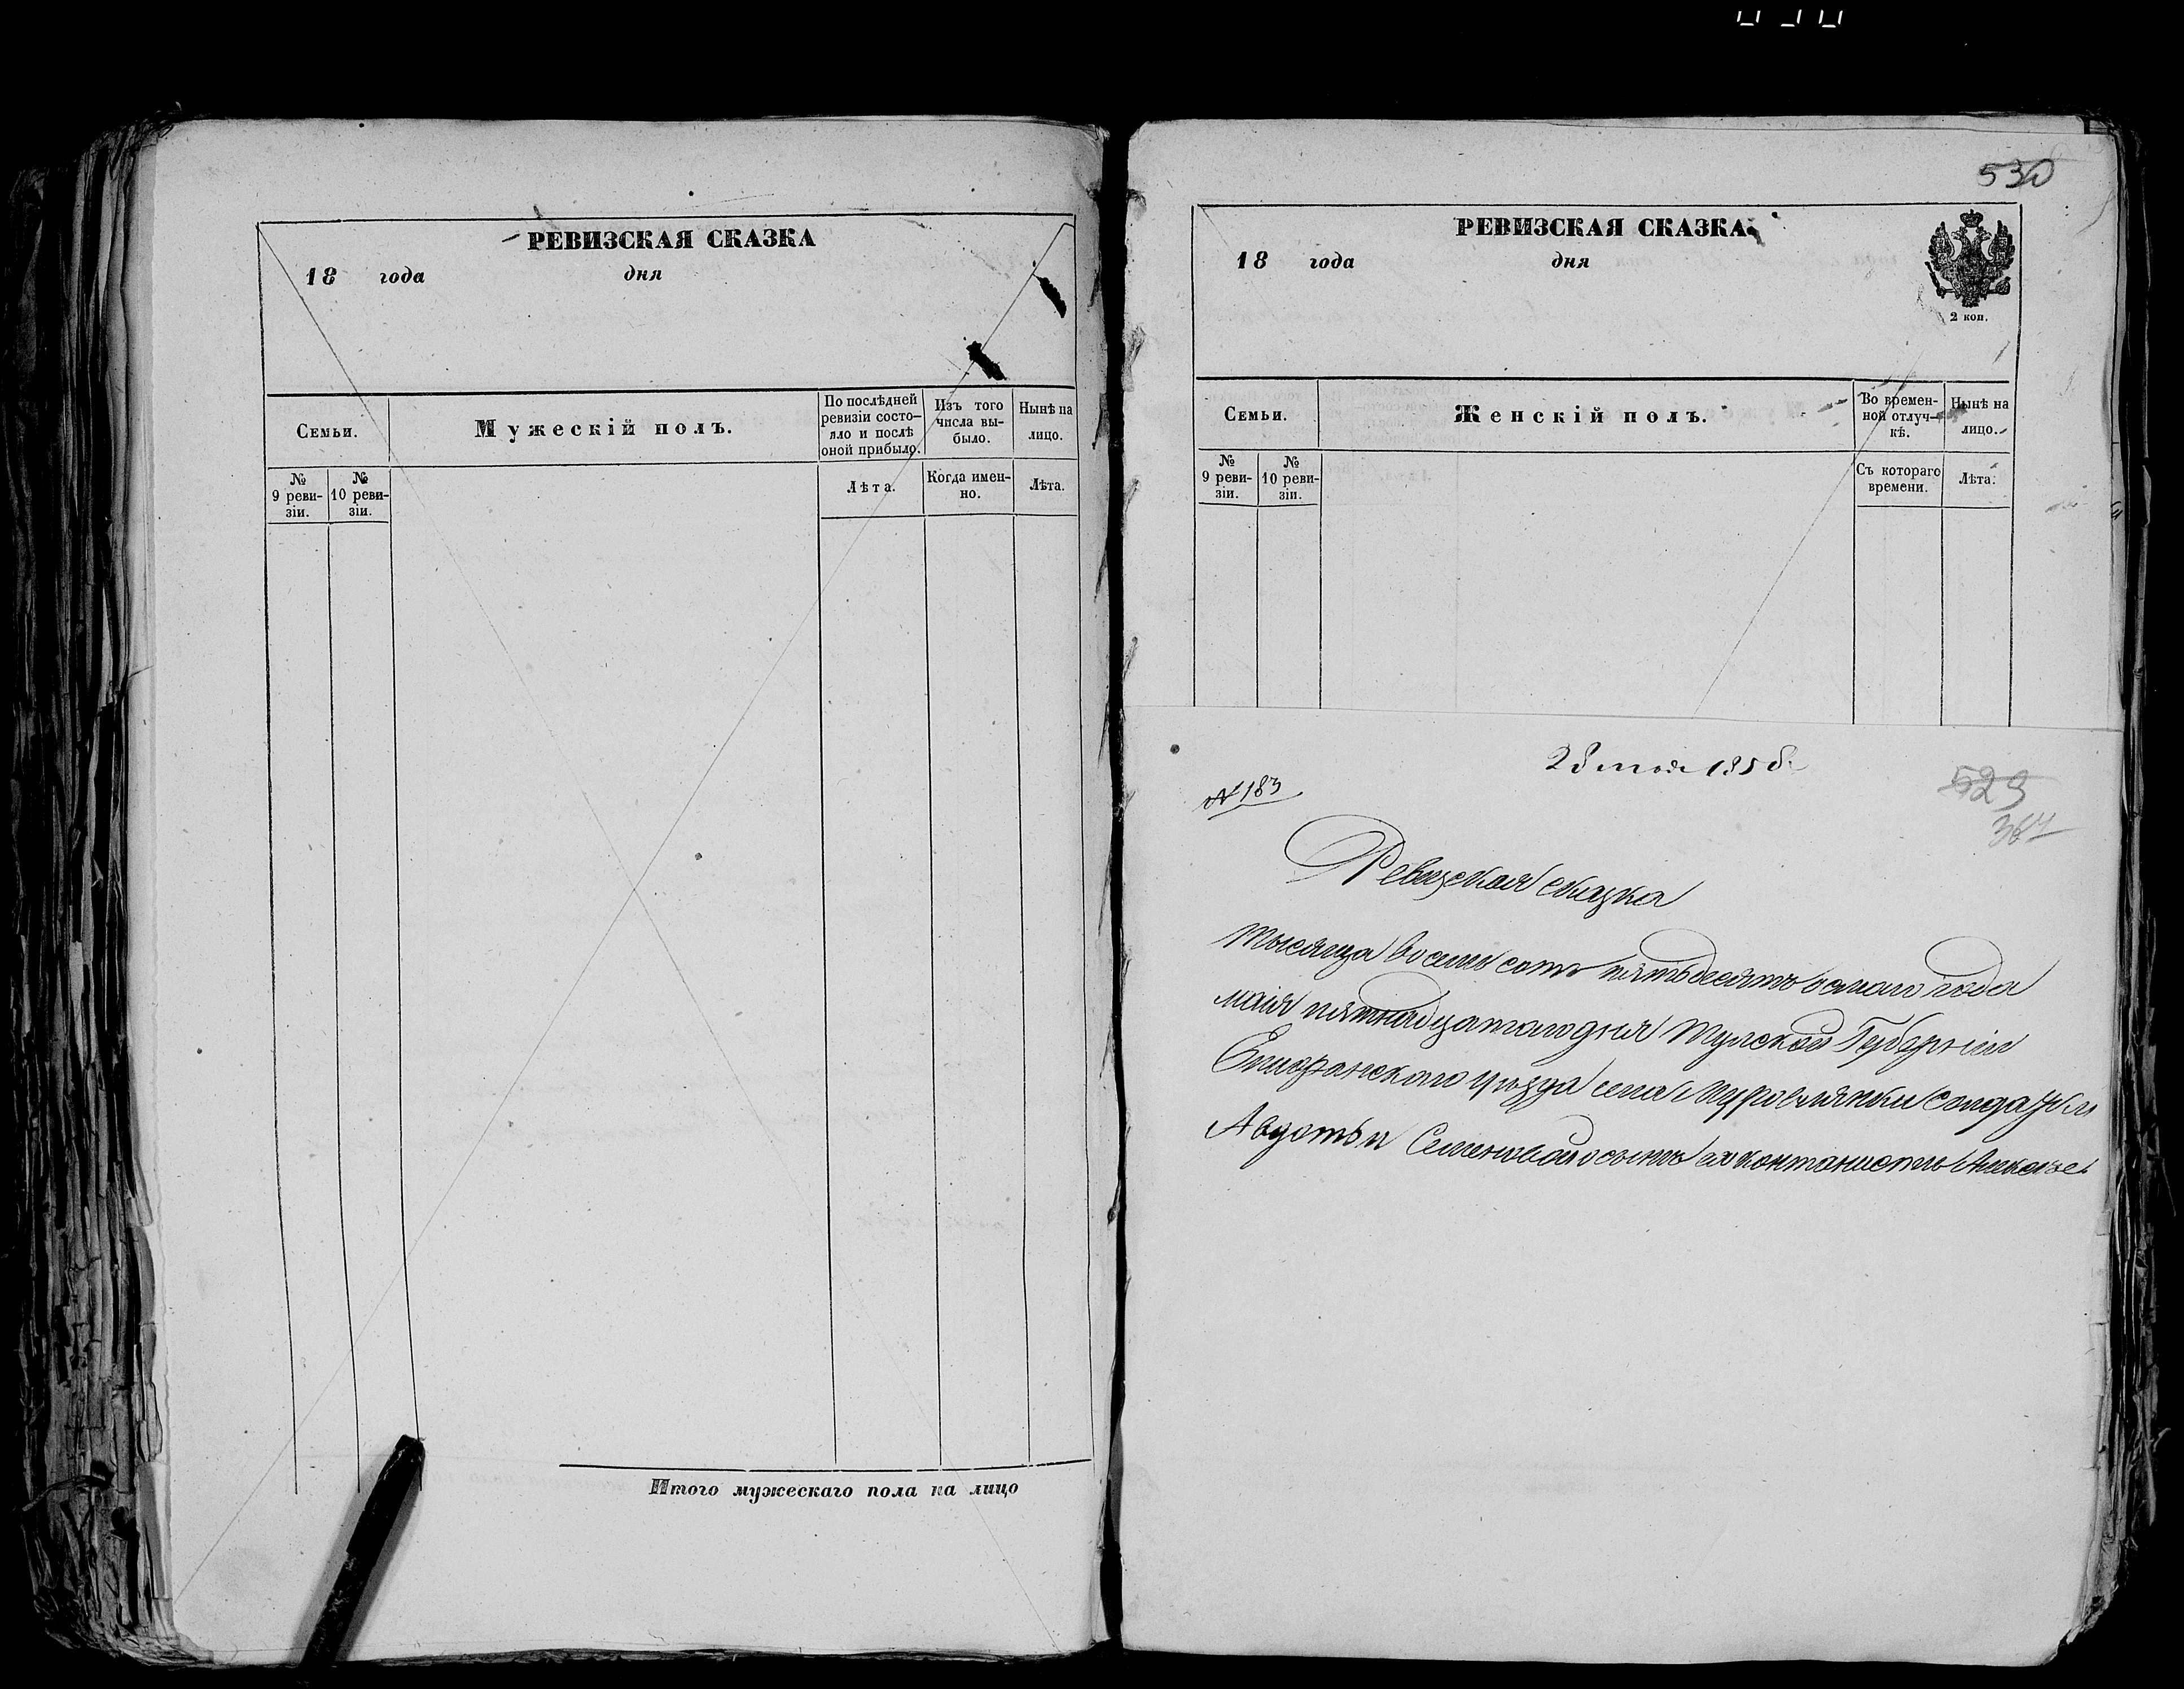 РЕВИЗСКАЯ СКАЗКА
18 года дня
Семьи.
Мужескій полъ.
По послѣдней
ревизіи состо-
яло и послѣ
оной прибыло.
Изъ того
числа вы-
было.
Нынѣ на
лицо.
№
9 реви-
зіи.
№
10 реви-
зіи.
Лѣта.
Когда имен-
но.
Лѣта.
Итого мужескаго пола на лицо
530
РЕВИЗСКАЯ СКАЗКА
18 года дня
2 коп.
Семьи.
Женскій полъ.
Во времен-
ной отлуч-
кѣ.
Нынѣ на
лицо.
№
9 реви-
зіи.
№
10 реви-
зіи.
Съ котораго
времени.
Лѣта.
28 мая 1858
№ 183
529
Ревизская сказка
тысяща восемь сотъ пятьдесятъ осмаго года
маія пятнадцатаго дня Тулской Губерніи
Епифанского уѣзда села Муровлянки солдатки
Авдотьи Семеновой о сынѣ ея кантонистѣ Алексѣе